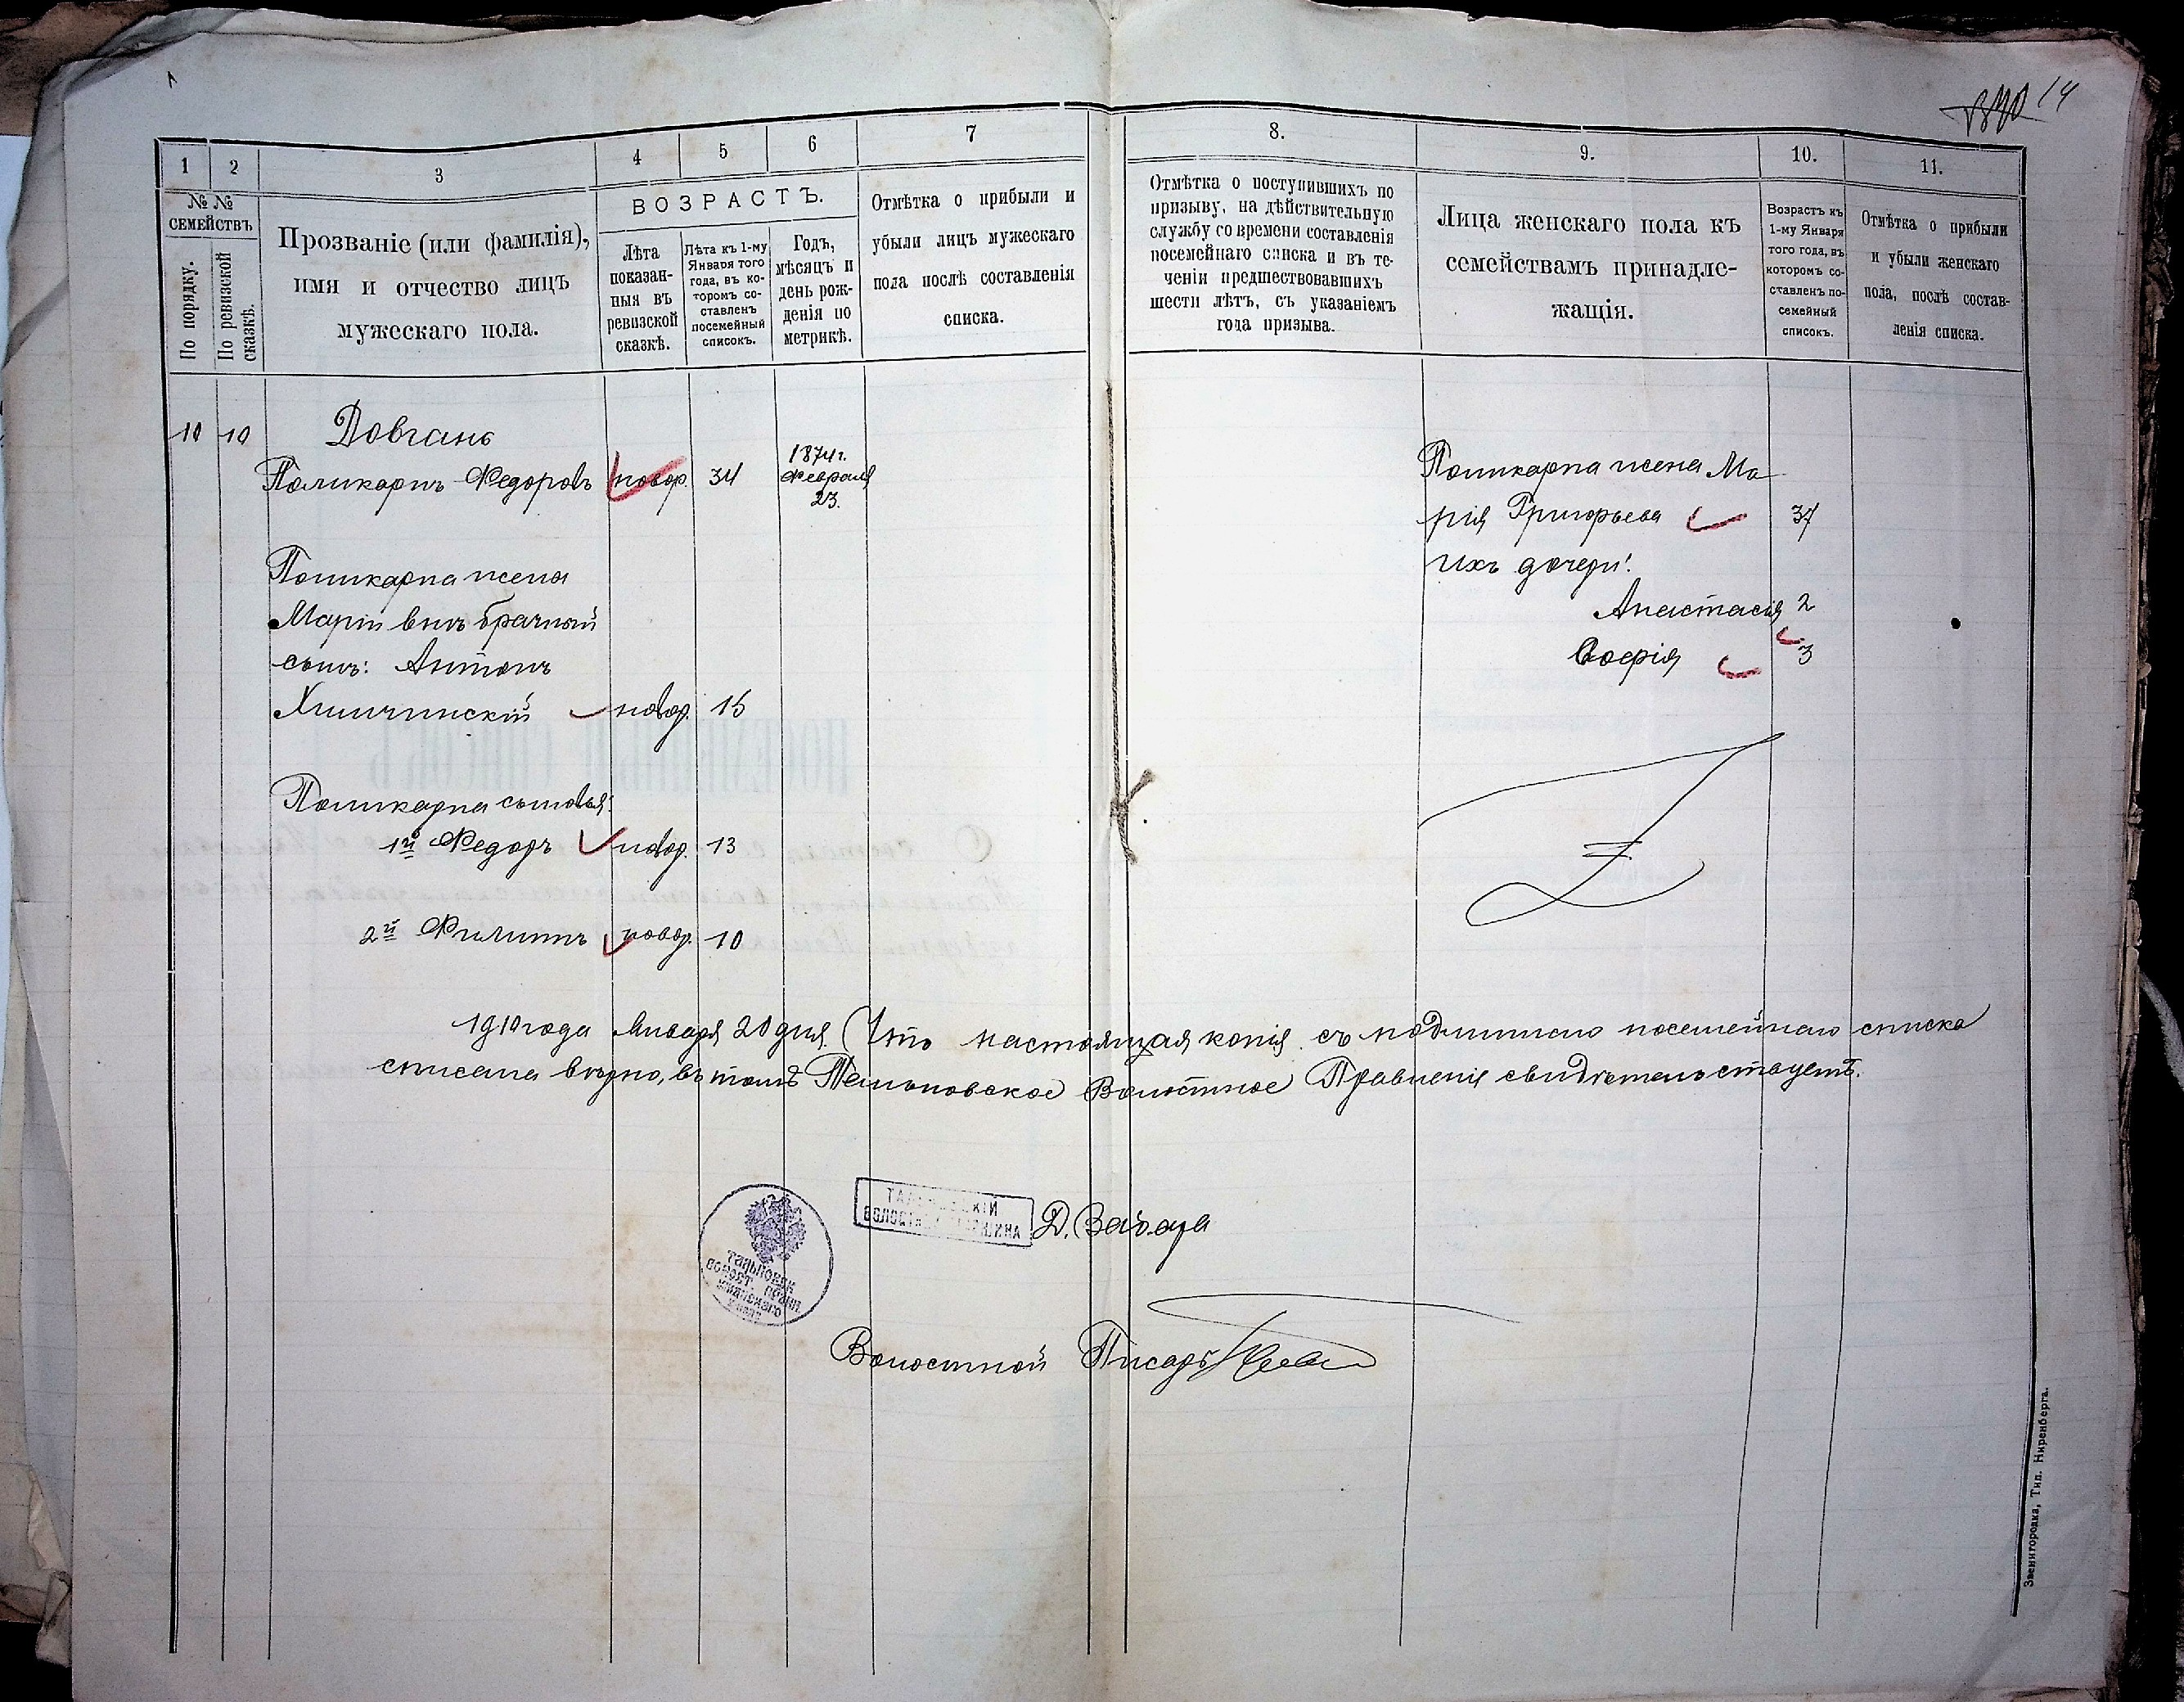 14
1
2
3
4
5
6
7
8.
9.
10.
11.
№ №
СЕМЕЙСТВЪ
По порядку.
По ревизской
сказкѣ.
Прозваніе (или фамилія),
имя и отчество лицъ
мужескаго пола.
ВОЗРАСТЪ.
Лѣта
показан-
ныя въ
ревизской
сказкѣ.
Лѣта къ 1-му
Января того
года, въ ко-
торомъ со-
ставленъ
посемейный
списокъ.
Годъ,
мѣсяцъ и
день рож-
денія по
метрикѣ.
Отмѣтка о прибыли и
убыли лицъ мужескаго
пола послѣ составленія
списка.
Отмѣтка о поступившихъ по
призыву, на дѣйствительную
службу со времени составленія
посемейнаго списка и въ те-
ченіи предшествовавшихъ
шести лѣтъ, съ указаніемъ
года призыва.
Лица женскаго пола къ
семействамъ принадле-
жащія.
Возрастъ къ
1-му Января
того года, въ
которомъ со-
ставленъ по-
семейный
списокъ.
Отмѣтка о прибыли
и убыли женскаго
пола, послѣ состав-
ленія списка.
10 10 Довгань
Поликарпъ Федоровъ новор. 34 1874 г.
Февраля
23.
Поликарпа жены
Маріи внѣ брачный
сынъ: Антонъ
Химчинскій новор. 15
Поликарпа сыновья:
1й Федоръ новор. 13
2й Филиппъ новор. 10
Поликарпа жена Ма
рія Григорьева 37
Ихъ дочери:
Анастасія 2
3
1910 года Января 20 дня. Что настоящая копія съ подлиннаго посемейнаго списка
списана вѣрно, въ томъ Тальновское Волостное Правленіе свидѣтельствуетъ.
ТАЛЬНОВСКІЙ
ВОЛОСТНОЙ СТАРШИНА
Д.
ТАЛЬНОВСК.
ВОЛОСТ. ПРАВЛ.
Волостной Писарь
Звенигородка, Тип. Ниренберга.